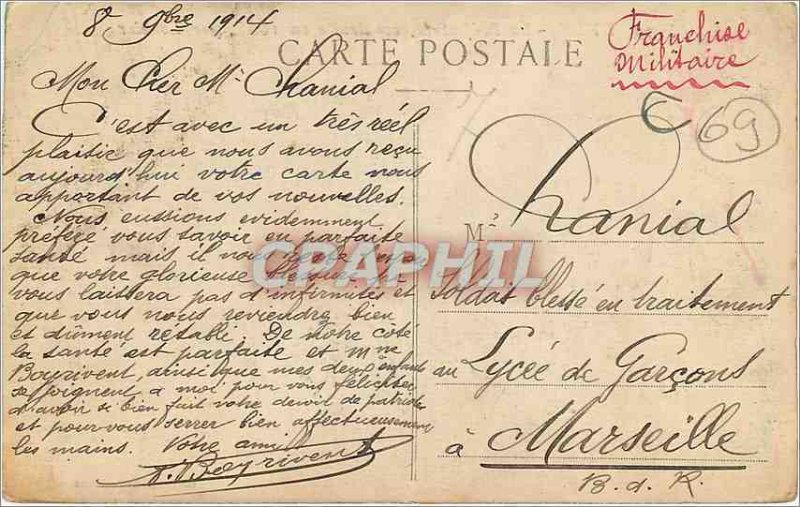 8 9bre 1914
CARTE POSTALE
Franchise
Militaire
69
Mon Cher Mr Chanial
C'est avec un très réel
plaisir que nous avons reçu
aujourd'hui votre carte nous
apportant de vos nouvelles.
Nous eussions evidemment
préféré vous savoir en parfaite
santé mais il nous reste
que votre glorieuse blessure
vous laissera pas d'infirmités et
que vous nous reviendrez bien
et dûment rétabli. De notre coté
la santé est parfaite et Mme
Boyrivent, ainsi que mes deux enfants
se joignent à moi pour vous féliciter
d'avoir si bien fait votre devoir de patriote
et pour vous serrer bien affectueusement
les mains. Votre ami
A. Boyrivent
Mr Chanial
Soldat blessé en traitement
au Lycée de Garçons
à Marseille
B. d. R.
CPAPHIL